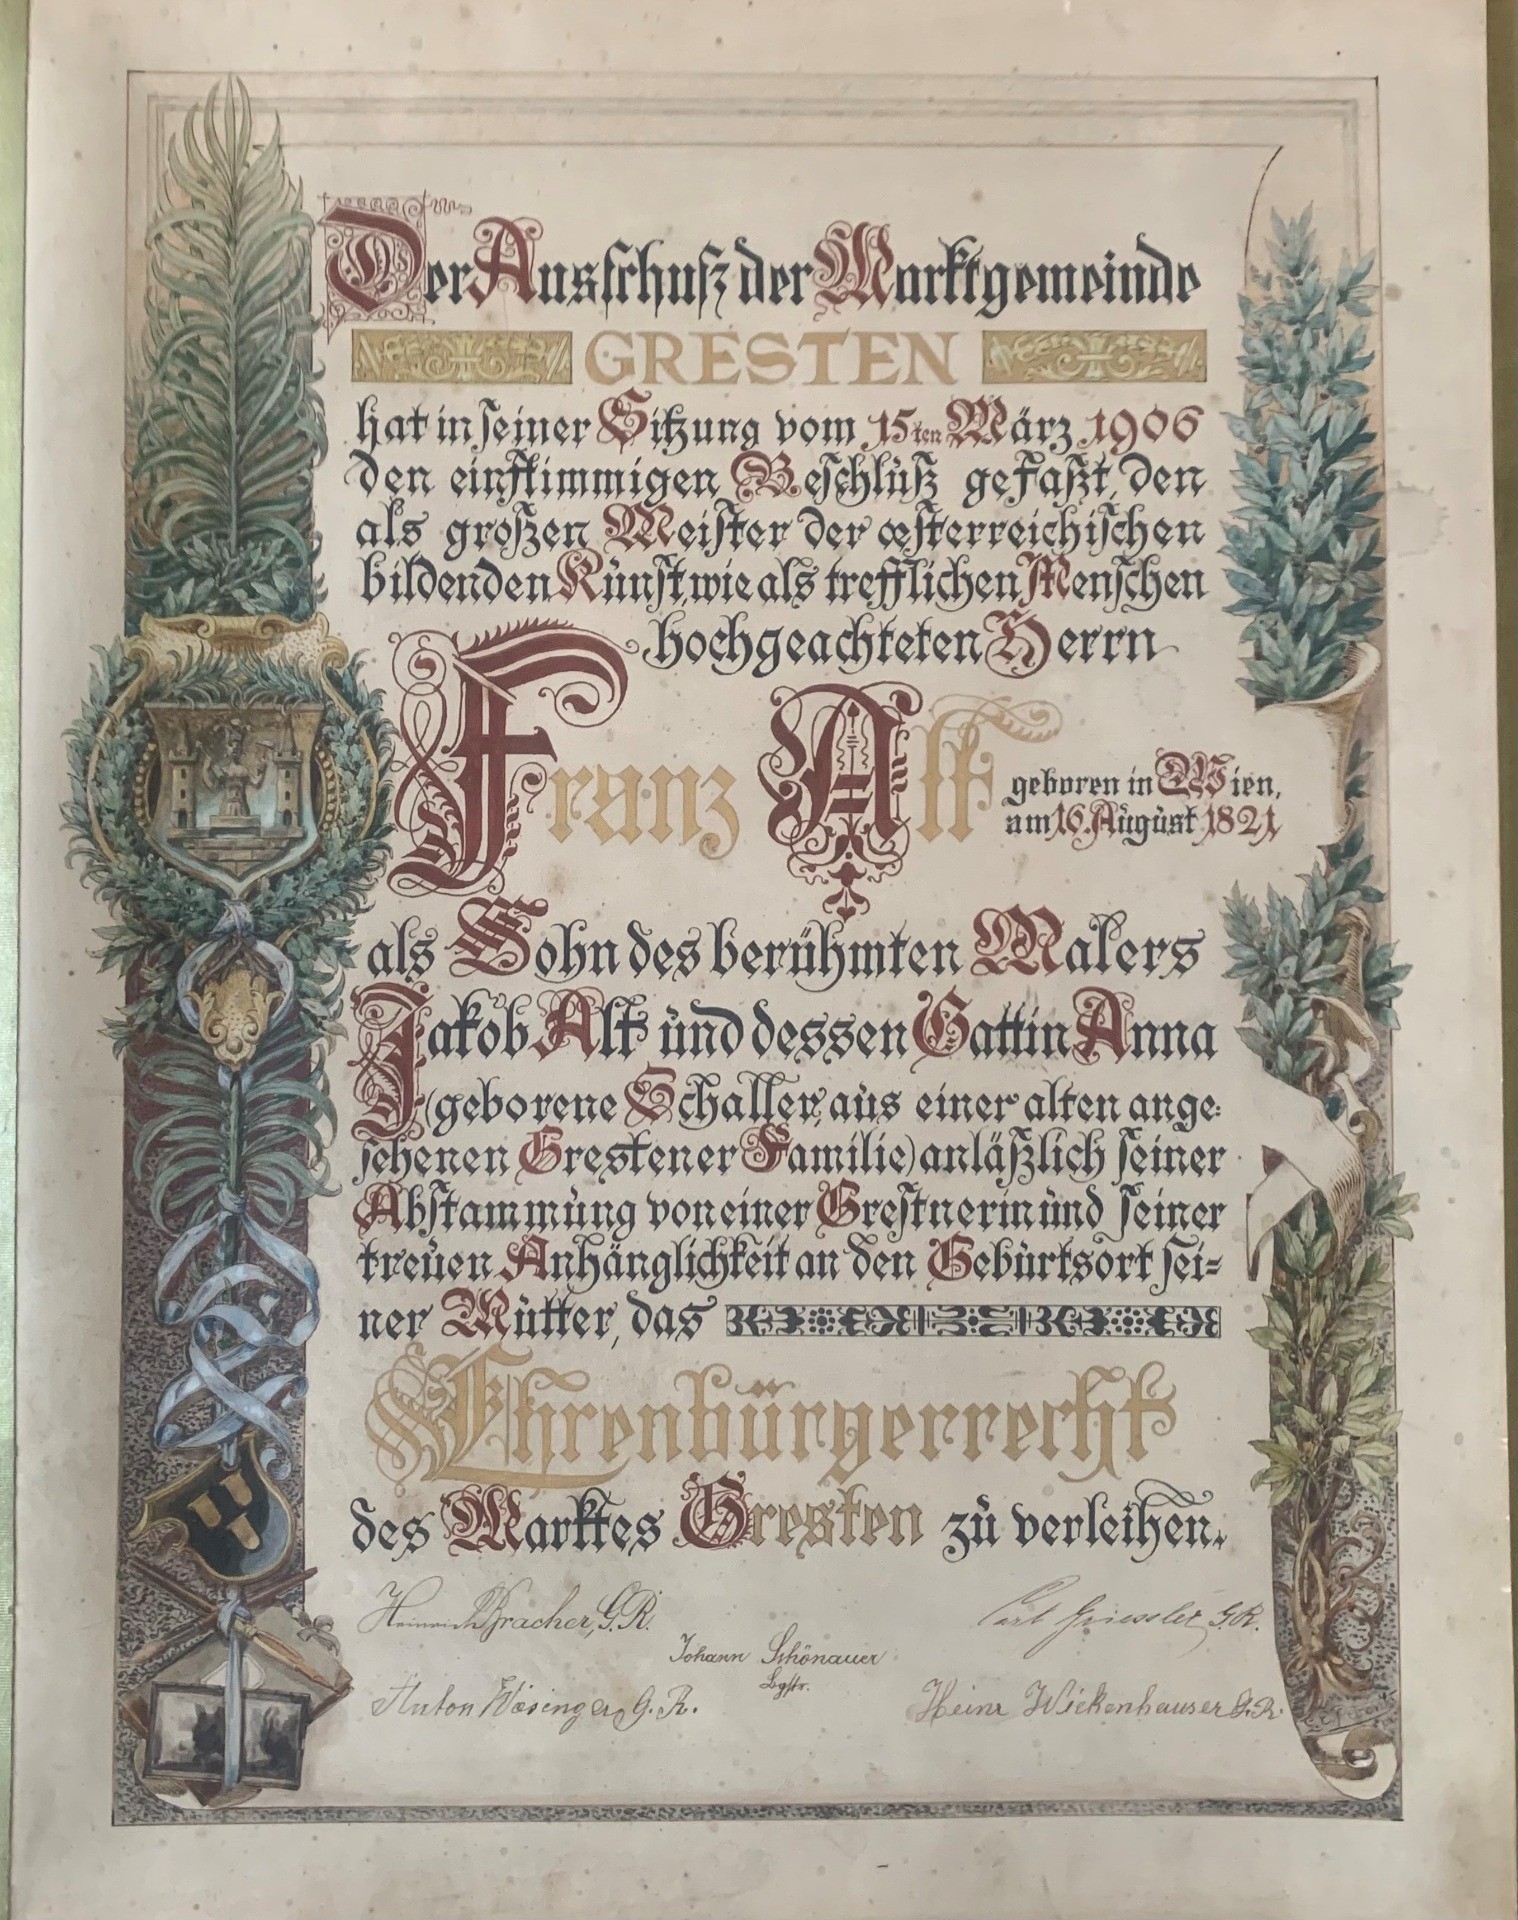 Der Ausschuß der Marktgemeinde
GRESTEN
hat in seiner Sitzung vom 15ten März 1906
den einstimmigen Beschluß gefaßt, den
als großen Meister der œsterreichischen
bildenden Kunst, wie als trefflichen Menschen
hochgeachteten Herrn
Franz Alt geboren in Wien,
am 16. August 1821,
als Sohn des berühmten Malers
Jakob Alt und dessen Gattin Anna
(geborene Schaller, aus einer alten ange:
sehenen Grestener Familie) anläßlich seiner
Abstammung von einer Grestnerin und seiner
treuen Anhänglichkeit an den Geburtsort sei=
ner Mutter, das
Ehrenbürgerrecht
des Marktes Gresten zu verleihen.
Heinrich Bracher, G.R.
Carl Griessler G.R.
Johann Schönauer
Bgstr.
Anton Wösinger, G.R.
Heinr Wickenhauser G.R.